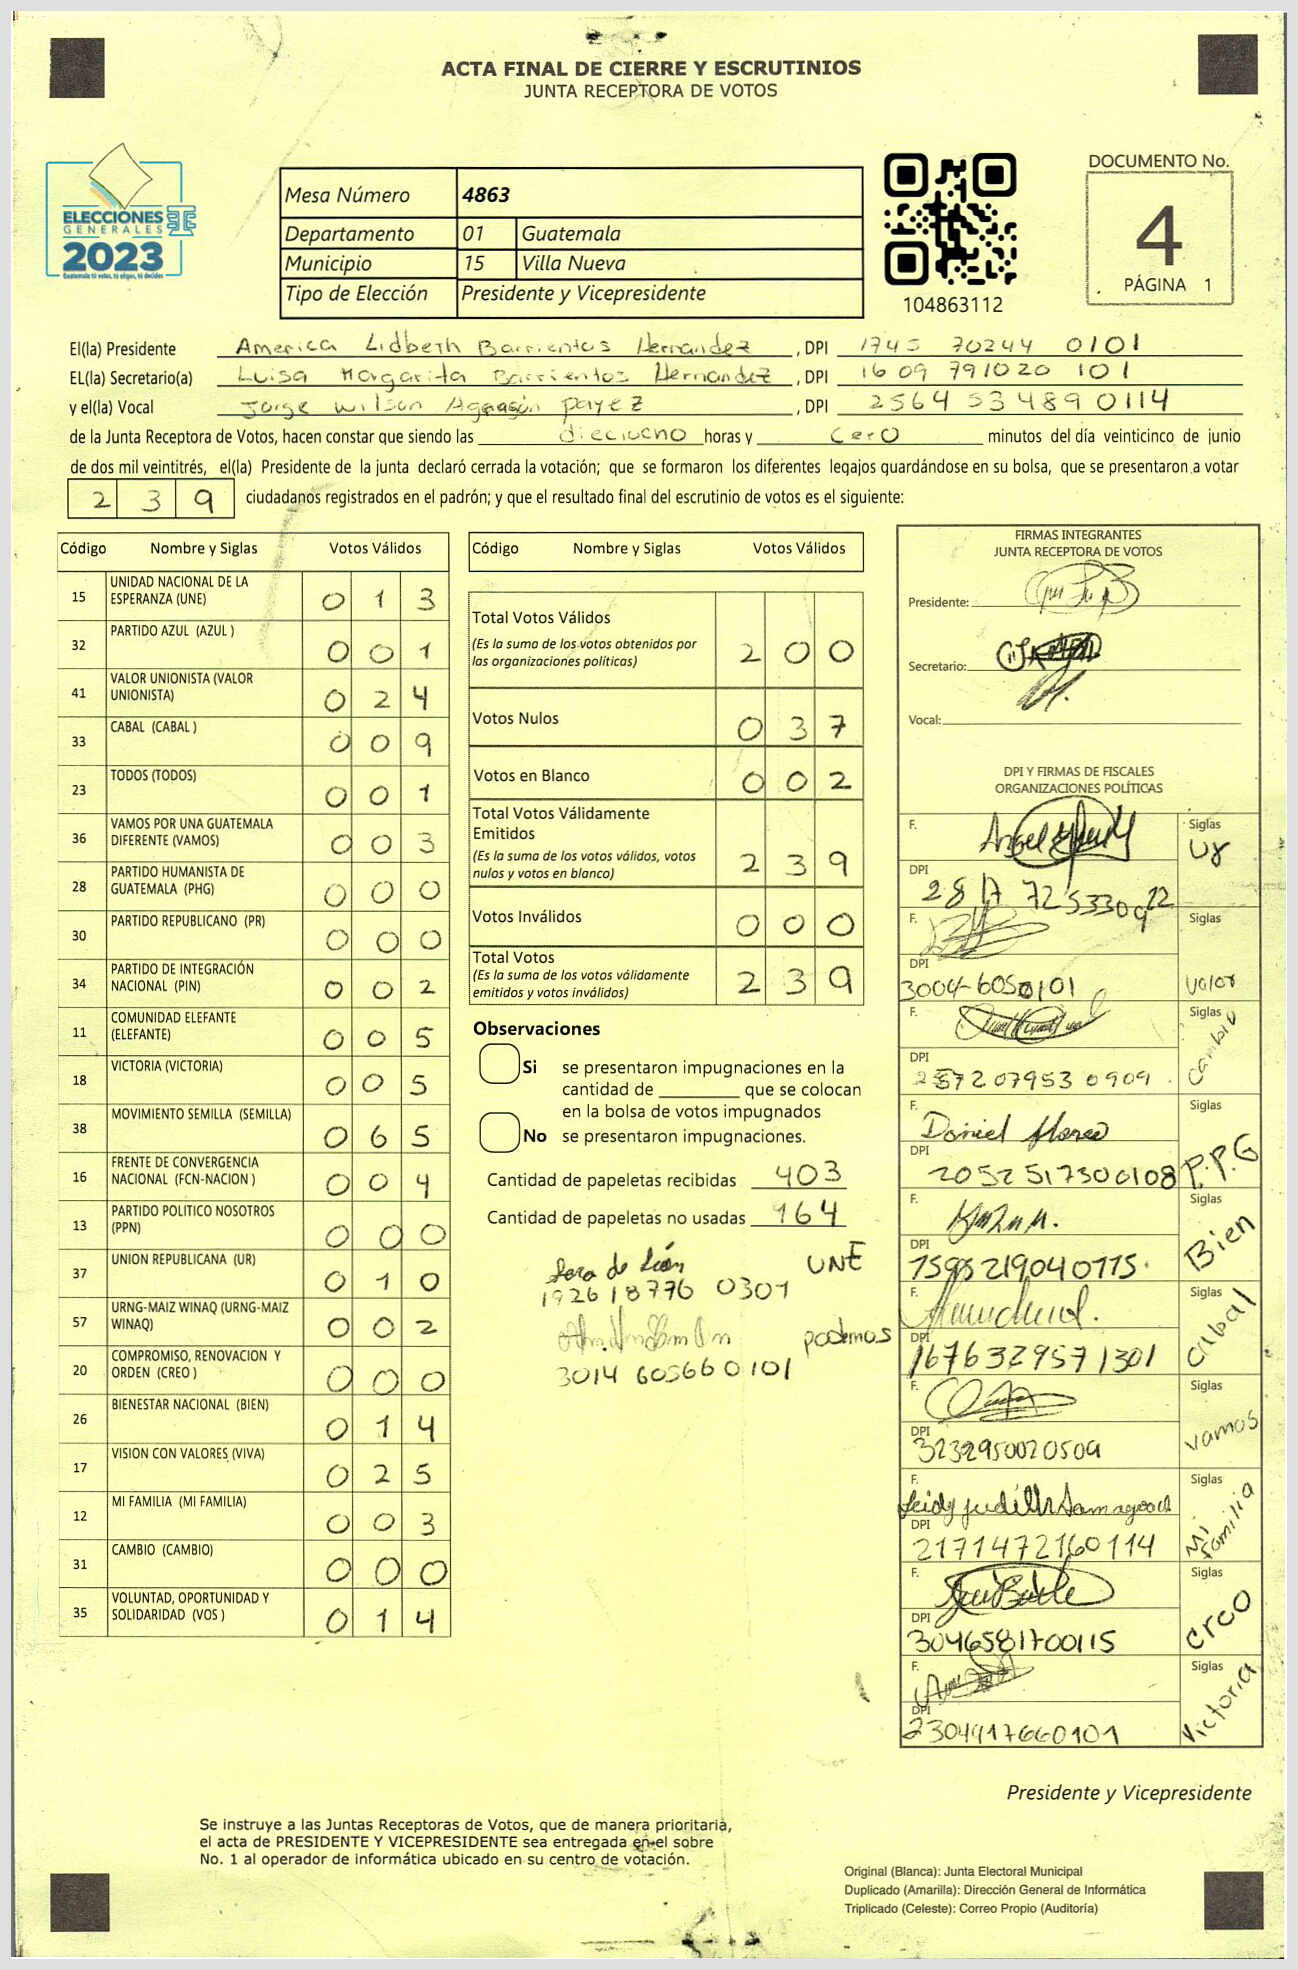 ACTA FINAL DE CIERRE Y ESCRUTINIOS
JUNTA RECEPTORA DE VOTOS
ELECCIONES
GENERALES
2023
Guatemala tú votas, tú eliges, tú decides
Mesa Número 4863
Departamento 01 Guatemala
Municipio 15 Villa Nueva
Tipo de Elección Presidente y Vicepresidente
104863112
DOCUMENTO No.
4
PÁGINA 1
El(la) Presidente America Lidbeth Barrientos Hernandez, DPI 1745 70244 0101
EL(la) Secretario(a) Luisa Margarita Barrientos Hernandez, DPI 1609 791020 101
y el(la) Vocal Jorge Wilson Payez, DPI 2564 53489 0114
de la Junta Receptora de Votos, hacen constar que siendo las dieciocho horas y cero minutos del día veinticinco de junio
de dos mil veintitrés, el(la) Presidente de la junta declaró cerrada la votación; que se formaron los diferentes legajos guardándose en su bolsa, que se presentaron a votar
2 3 9 ciudadanos registrados en el padrón; y que el resultado final del escrutinio de votos es el siguiente:
Código Nombre y Siglas Votos Válidos
15 UNIDAD NACIONAL DE LA ESPERANZA (UNE) 0 1 3
32 PARTIDO AZUL (AZUL ) 0 0 1
41 VALOR UNIONISTA (VALOR UNIONISTA) 0 2 4
33 CABAL (CABAL ) 0 0 9
23 TODOS (TODOS) 0 0 1
36 VAMOS POR UNA GUATEMALA DIFERENTE (VAMOS) 0 0 3
28 PARTIDO HUMANISTA DE GUATEMALA (PHG) 0 0 0
30 PARTIDO REPUBLICANO (PR) 0 0 0
34 PARTIDO DE INTEGRACIÓN NACIONAL (PIN) 0 0 2
11 COMUNIDAD ELEFANTE (ELEFANTE) 0 0 5
18 VICTORIA (VICTORIA) 0 0 5
38 MOVIMIENTO SEMILLA (SEMILLA) 0 6 5
16 FRENTE DE CONVERGENCIA NACIONAL (FCN-NACION ) 0 0 4
13 PARTIDO POLITICO NOSOTROS (PPN) 0 0 0
37 UNION REPUBLICANA (UR) 0 1 0
57 URNG-MAIZ WINAQ (URNG-MAIZ WINAQ) 0 0 2
20 COMPROMISO, RENOVACION Y ORDEN (CREO ) 0 0 0
26 BIENESTAR NACIONAL (BIEN) 0 1 4
17 VISION CON VALORES (VIVA) 0 2 5
12 MI FAMILIA (MI FAMILIA) 0 0 3
31 CAMBIO (CAMBIO) 0 0 0
35 VOLUNTAD, OPORTUNIDAD Y SOLIDARIDAD (VOS ) 0 1 4
Código Nombre y Siglas Votos Válidos
Total Votos Válidos
(Es la suma de los votos obtenidos por las organizaciones políticas) 2 0 0
Votos Nulos 0 3 7
Votos en Blanco 0 0 2
Total Votos Válidamente Emitidos
(Es la suma de los votos válidos, votos nulos y votos en blanco) 2 3 9
Votos Inválidos 0 0 0
Total Votos
(Es la suma de los votos válidamente emitidos y votos inválidos) 2 3 9
Observaciones
Si se presentaron impugnaciones en la
cantidad de ________ que se colocan
en la bolsa de votos impugnados
No se presentaron impugnaciones.
Cantidad de papeletas recibidas 403
Cantidad de papeletas no usadas 164
de León UNE
1926 18776 0301
podemos
3014 605660101
FIRMAS INTEGRANTES
JUNTA RECEPTORA DE VOTOS
Presidente:
Secretario:
Vocal:
DPI Y FIRMAS DE FISCALES
ORGANIZACIONES POLÍTICAS
F. Angel Siglas
DPI 2817 72533 0922
F. Siglas Valor
DPI 3004-6050101
F. Siglas Cambio
DPI 2572079530909
F. Daniel Flores Siglas P.P.G
DPI 2052517300108
F. Siglas Bien
DPI 1595219040115.
F. Siglas Cabal
DPI 1676329571301
F. Siglas Vamos
DPI 3232950020509
F. Leidy Judith Samayoa Siglas Mi familia
DPI 2171472160114
F. Siglas Creo
DPI 3046581700115
F. Siglas Victoria
DPI 2304917660101
Presidente y Vicepresidente
Se instruye a las Juntas Receptoras de Votos, que de manera prioritaria,
el acta de PRESIDENTE Y VICEPRESIDENTE sea entregada en el sobre
No. 1 al operador de informática ubicado en su centro de votación.
Original (Blanca): Junta Electoral Municipal
Duplicado (Amarilla): Dirección General de Informática
Triplicado (Celeste): Correo Propio (Auditoría)